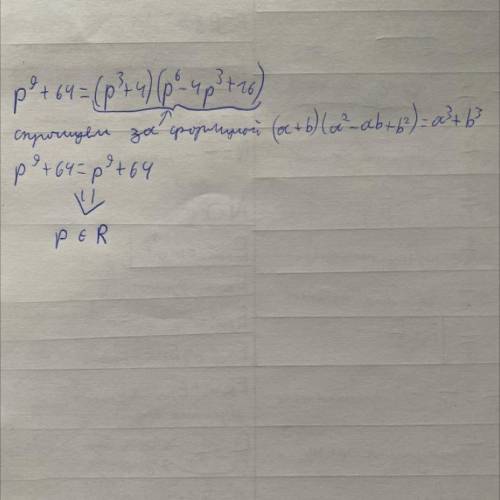 p⁹+64=(p³+4)(p⁶-4p³+16)
спрощуем за формулой (a+b)(a²-ab+b²)=a³+b³
p⁹+64=p⁹+64
⇓
p ∈ R